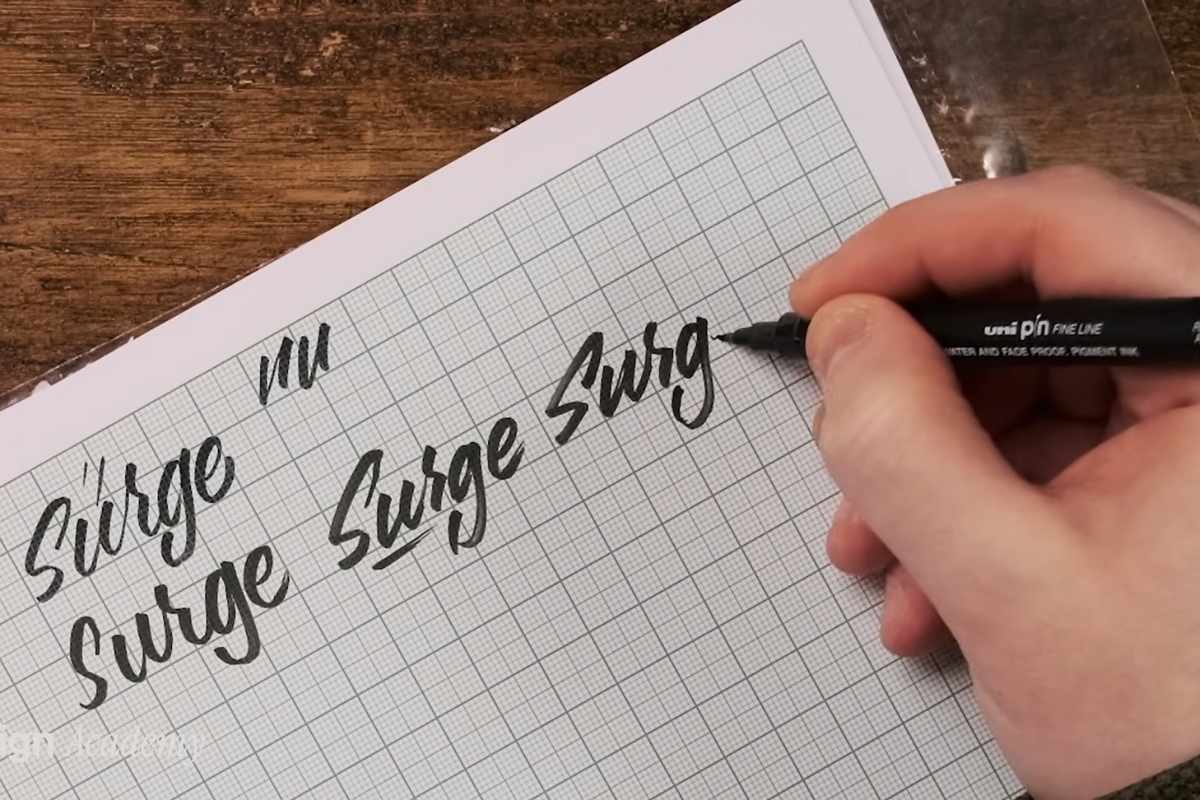 nu
Surge
Surge Surg
Surge
uni pin FINE LINE
WATER AND FADE PROOF, PIGMENT INK
ign Academy